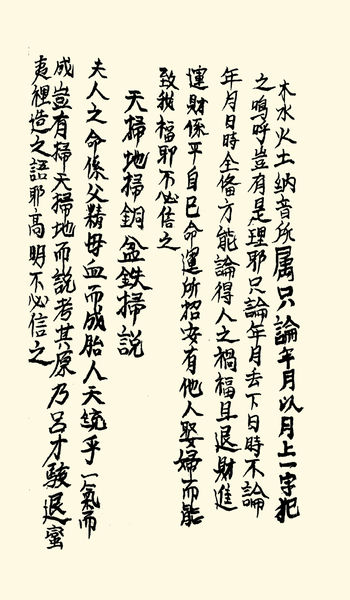 木水火土纳音所属只論年月以月上一字犯
之嗚呼豈有是理耶只論年月去下日時不論
年月日時全备方能論得人之禍福且退財進
運財係乎自已命運所招安有他人娶婦而能
致我福耶不必信之
天掃地掃銅盆鉄掃説
夫人之命係父精母血而成胎人天統乎一氣而
成豈有掃天掃地而説考其原乃呂才驗退蛮
夷裡造之語耶高明不必信之